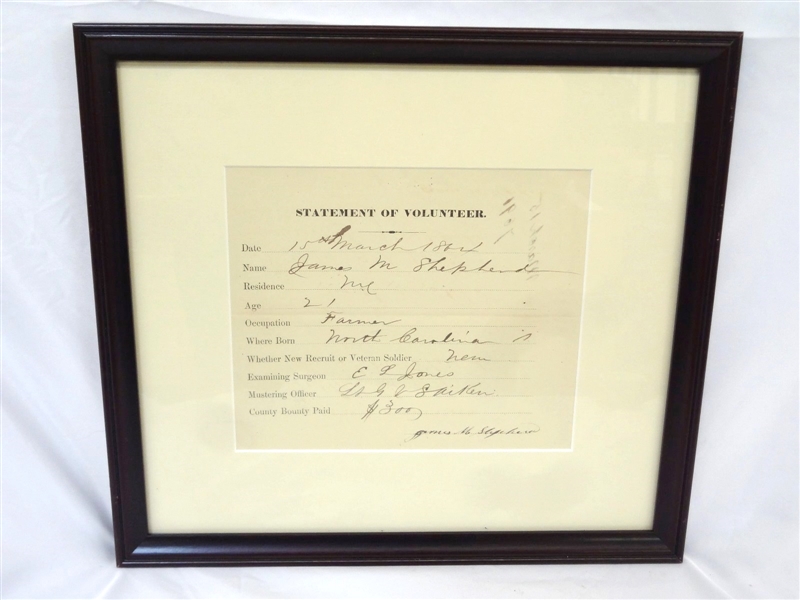 STATEMENT OF VOLUNTEER.
Date 15th March 1864
Name James M Shepherd
Residence
Age 21
Occupation Farmer
Where Born North Carolina
Whether New Recruit or Veteran Soldier New
Examining Surgeon E L Jones
Mustering Officer Lt G V
County Bounty Paid $300
James M. Shepherd